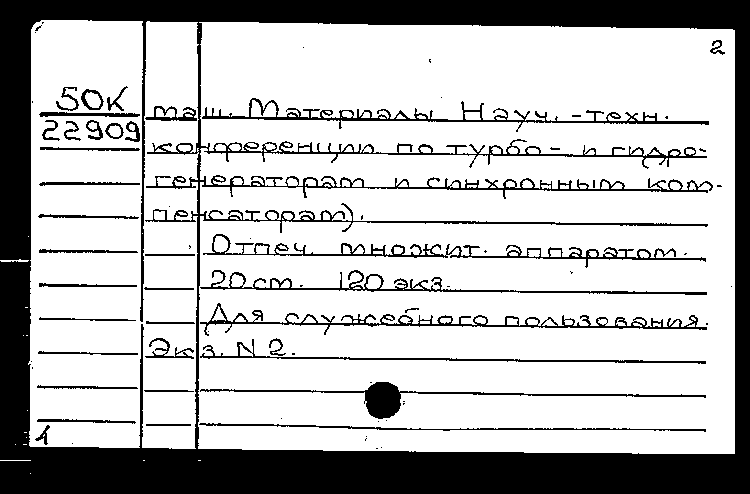 2
50К
22909
маш. Материалы Науч.-техн.
конференции по турбо- и гидро-
генераторам и синхронным ком-
пенсаторам).
Отпеч. множит. аппаратом.
20 см. 120 экз.
Для служебного пользования.
Экз. N 2.
1